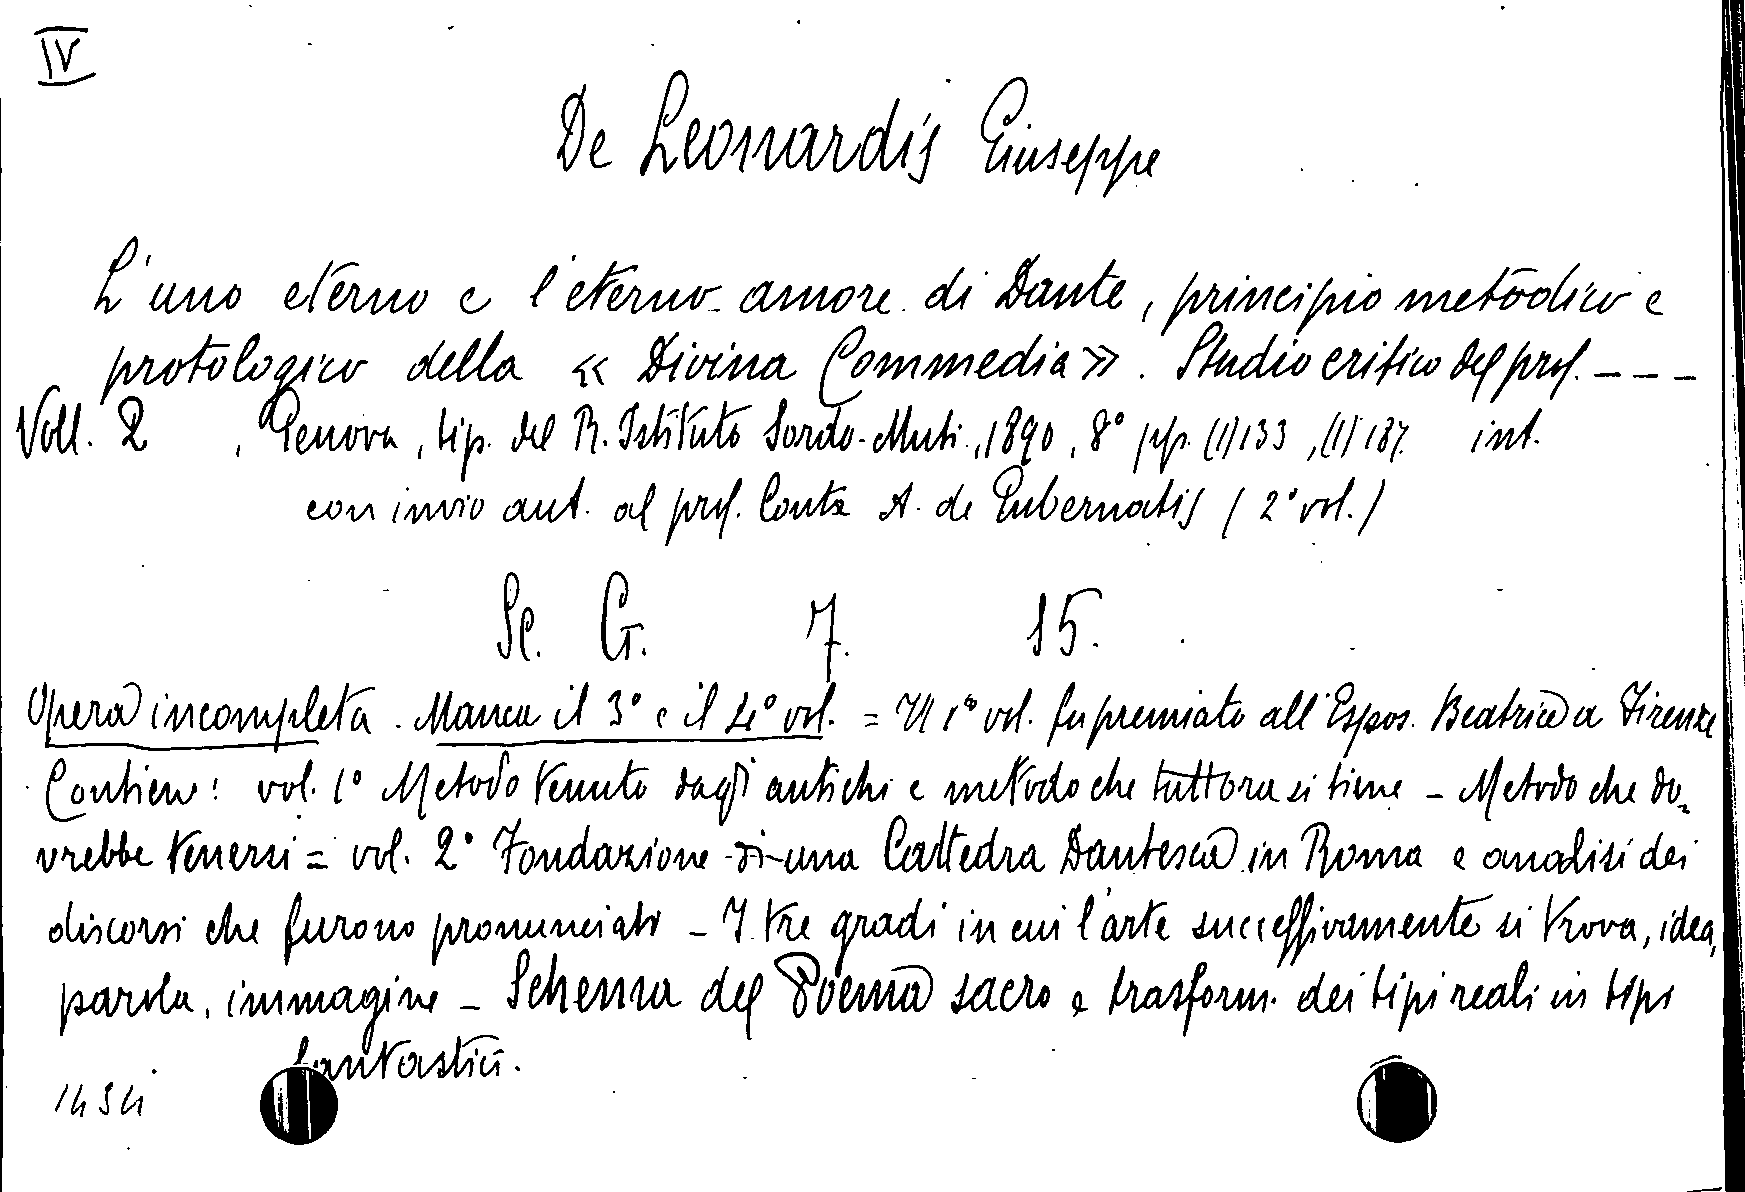 IV
De Leonardis Giuseppe
L'uno eterno e l'eterno amore di Dante, principio metodico e
protologico della « Divina Commedia ». Studio critico del prof. - - -
Voll. 2 , Genova, tip. del R. Istituto Sordo-Muti, 1890, 8° pp. (1)133, (1)187. int.
con invio aut. al prof. Conte A. de Gubernatis (2° vol.)
Sc. G. 7. 15.
Opera incompleta. Manca il 3° e il 4° vol. = Il 1° vol. fu premiato all'Espos. Beatrice a Firenze
Contiene: vol. 1° Metodo tenuto dagli antichi e metodo che tuttora si tiene - Metodo che do-
vrebbe tenersi = vol. 2° Fondazione di una Cattedra Dantesca in Roma e analisi dei
discorsi che furono pronunciati - I tre gradi in cui l'arte successivamente si trova, idea,
parola, immagine - Schema del Poema sacro e trasform. dei tipi reali in tipi
fantastici.